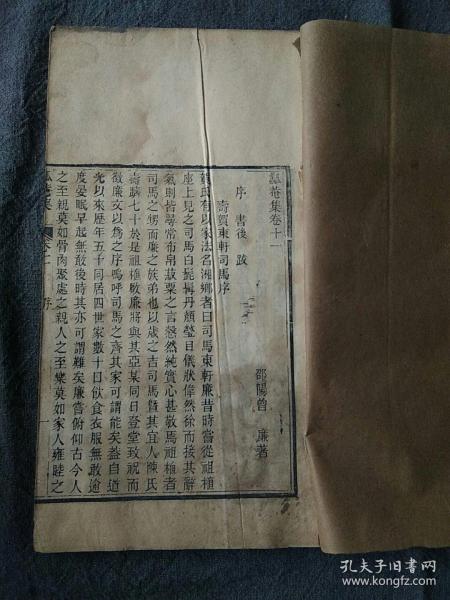 瓥菴集卷十一
邵陽曾 廉著
序 書後 跋
壽賀東軒司馬序
賀氏有以家法名湘鄉者曰司馬東軒廉昔時嘗從祖植
座上見之司馬白髭髯丹顏瑩目儀狀偉然徐而接其辭
氣則皆尋常布帛菽粟之言慤然純實心甚敬焉祖植者
司馬之甥而廉之族弟也以歲之吉司馬暨其宜人陳氏
壽躋七十於是祖植敬廉將與其亞某同日登堂致祝而
徵廉文以爲之序嗚呼司馬之齊其家可謂能矣蓋自道
光以來歷年五十同居四世家數十口飲食衣服無敢逾
度晏眠早起無敢後時其亦可謂難矣廉嘗俯仰古今人
之至親莫如骨肉聚處之親人之至樂莫如家人雍睦之
瓥菴集 卷十一 序 一
孔夫子旧书网
www.kongfz.com